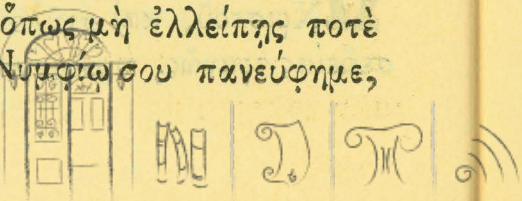 ὅπως μὴ ἐλλείπῃς ποτὲ
Νυμφίῳ σου πανεύφημε,